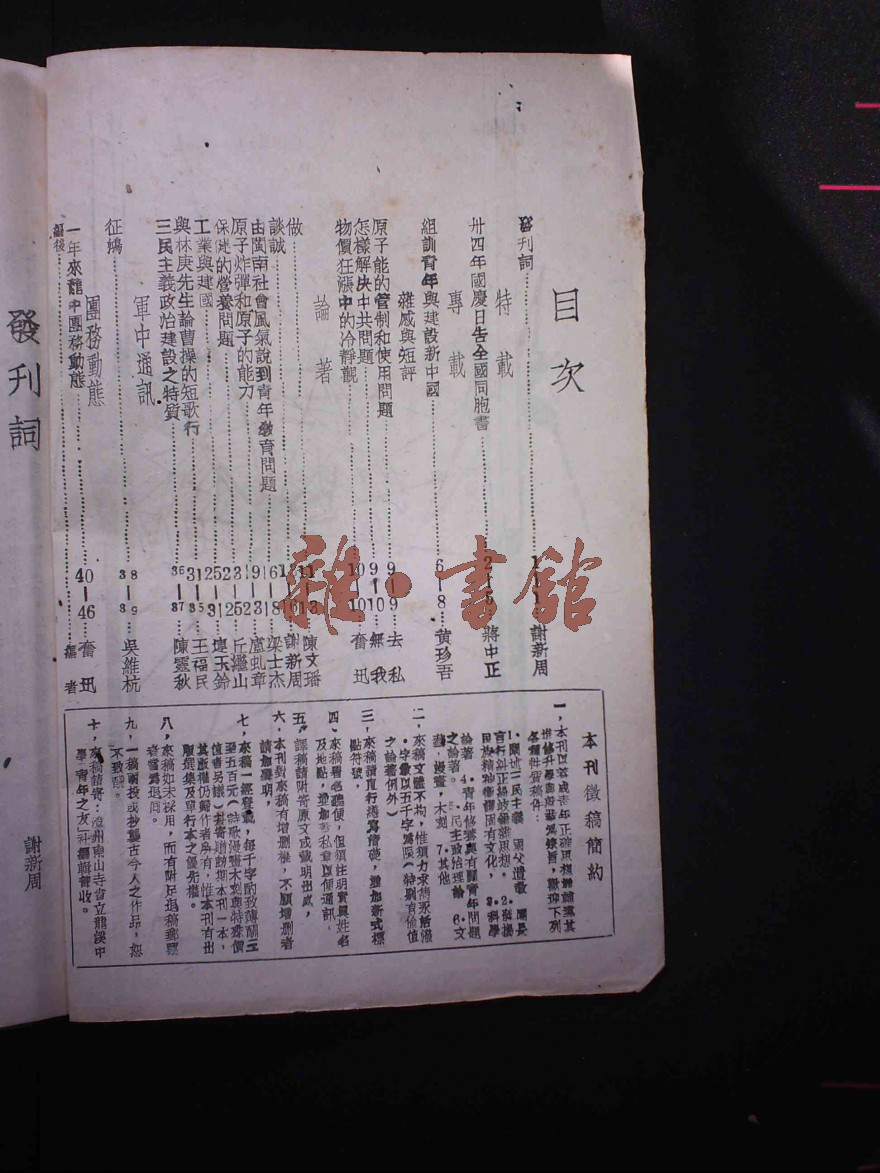 目次
發刊詞 1—1 謝新周
特載
卅四年國慶日告全國同胞書 2—5 蔣中正
專載
組訓青年與建設新中國 6—8 黃珍吾
雜感與短評
原子能的管制和使用問題 9—9 去私
怎樣解决中共問題 9—10 無我
物價狂漲中的冷靜觀 10—10 奮迅
論著
做 11—13 陳文璠
談誠 13—16 謝新周
由閩南社會風氣說到青年教育問題 16—18 梁士杰
原子炸彈和原子的能力 19—23 盧虬章
保健的營養問題 23—25 丘繼山
工業與建國 25—31 玉鈴
與林庚先生論曹操的短歌行 31—35 王福民
三民主義政治建設之特質 36—37 陳靈秋
軍中通訊
征鴻 38—39 吳維杭
團務動態
一年來龍中團務動態 40—46 奮迅
編後 編者
本刊徵稿簡約
一，本刊以養成青年正確思想
各種性質稿件：
1.闡述三民主義 國父遺敎 團長
言行糾正歧領導思想。2.發揚
民族精神傳揚固有文化。3.科學
論著 4.青年修養與有關青年問題
之論著。5.民主政治理論 6.文
藝，漫畫，木刻。7.其他
二，來稿文體不拘，惟須力求雋永活潑
，字數以五千字爲限（特別有價值
之論著例外）
三，來稿請直行繕寫清楚，並加新式標
點符號。
四，來稿署名聽便，但須註明眞實姓名
及地點，並加蓋私章以便通訊。
五，譯稿請附寄原文或載明出處，
六，本刊對來稿有增刪權，不願增刪者
請加聲明，
七，來稿一經登載，每千字酌致薄酬三
至五百元（詩歌漫畫木刻與特殊價
值者另議）並寄贈該期本刊一本，
其版權仍歸作者所有，惟本刊有出
版選集及單行本之優先權。
八，來稿如未採用，而有附足退稿郵票
者當爲退囘。
九，一稿兩投或抄襲古今人之作品，恕
不致酬。
十，來稿請寄：漳州南山寺省立龍溪中
學「青年之友」社編輯部收。
發刊詞
謝新周
雜·書館